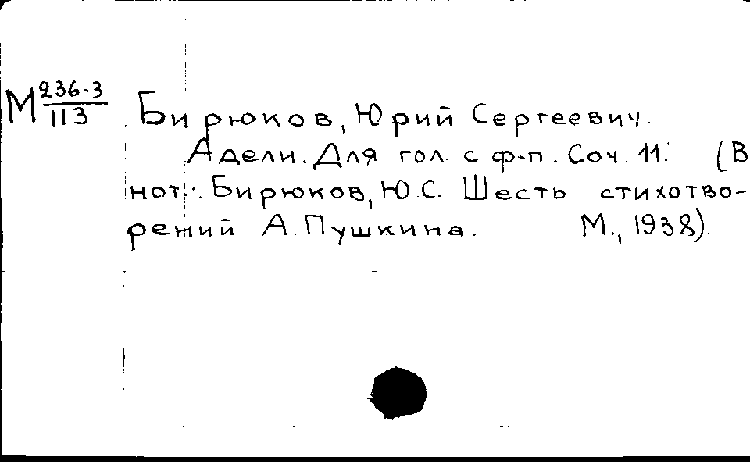 М 236-3/113 Бирюков, Юрий Сергеевич.
Адели. Для гол. с ф-п. Соч. 11. (В
нот.: Бирюков, Ю.С. Шесть стихотво-
рений А. Пушкина. М., 1938).